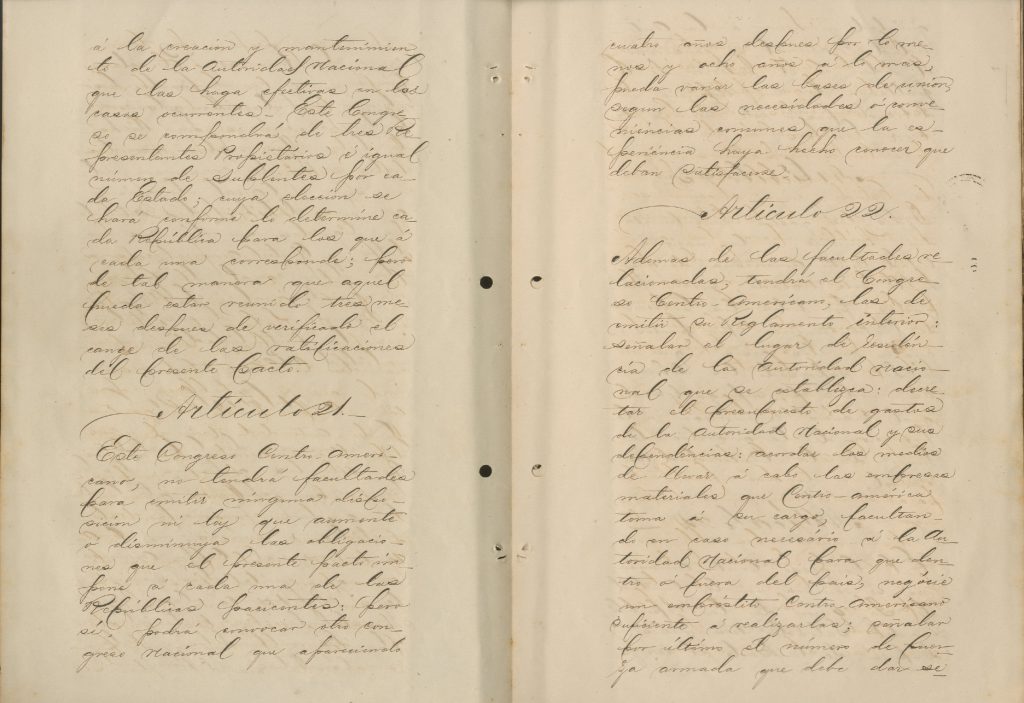 á la creacion y mantenimien
to de la Autoridad Nacional
que las haga efectivas en los
casos ocurrentes. Este Congre-
so se compondra de tres Re
presentantes Propietarios é igual
número de Suplentes por ca-
da Estado; cuya eleccion se
hará conforme lo determine ca-
da República para los que á
cada una corresponde; pero
de tal manera que aquel
pueda estar reunido tres me-
ses despues de verificado el
cange de las ratificaciones
del presente Pacto.
Artículo 21.
Este Congreso Centro-Ameri-
cano, no tendrá facultades
para emitir ninguna dispo-
sicion ni ley que aumente
o disminuya las obligacio-
nes que el presente pacto im-
pone a cada una de las
Repúblicas pacientes: pero
sí, podrá convocar otro con-
greso Nacional que apareciendo
cuatro años despues por lo me-
nos y ocho años a lo mas,
pueda variar las bases de union,
segun las necesidades ó conve-
niencias comunes que la es-
periencia haya hecho conocer que
deban satisfacerse.
Artículo 22.
Ademas de las facultades re-
lacionadas, tendrá el Congre-
so Centro-Americano, las de
emitir su Reglamento interior:
señalar el lugar de residen-
cia de la Autoridad Nacio-
nal que se establezca: decre-
tar el presupuesto de gastos
de la Autoridad Nacional y sus
dependencias: acordar los medios
de llevar á cabo las empresas
materiales que Centro-america
toma á su cargo, facultan-
do en caso necesario a la Au-
toridad Nacional para que den-
tro ó fuera del pais, negócie
un empréstito Centro-Americano
suficiente á realizarlas; señalar
por último el número de fuer-
za armada que debe dar se